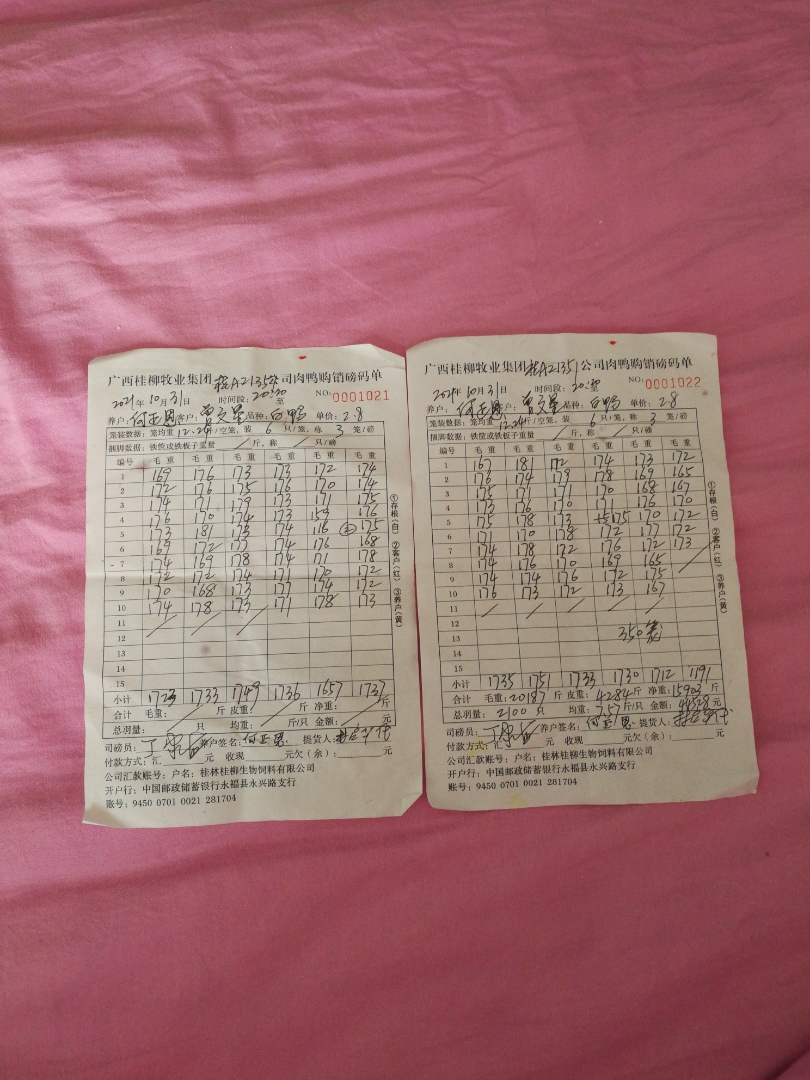 广西桂柳牧业集团桂A21351公司肉鸭购销磅码单
2021年10月31日 时间段：20:30至
NO:0001021
养户：何正恩 客户：曾文星 品种：白鸭 单价：2.8
笼装数据：笼均重12.24斤/空笼，装6只/笼，称3笼/磅
捆脚数据：铁筐或铁板子重量 斤，称 只/磅
编号 毛重 毛重 毛重 毛重 毛重 毛重
1 169 176 173 173 172 174
2 172 176 175 176 170 174
3 174 171 179 173 171 175
4 176 170 174 173 159 176
5 173 181 173 174 116 ② 175
6 169 172 177 174 176 168
7 174 169 178 174 171 178
8 172 172 174 171 170 172
9 170 168 173 177 174 172
10 174 178 173 171 178 173
11
12
13
14
15
小计 1723 1733 1749 1736 1657 1737
合计 毛重： 斤 皮重： 斤 净重： 斤
总羽量： 只 均重： 斤/只 金额： 元
司磅员： 养户签名：何正恩 提货人：
付款方式：汇 元 收现 元欠（余）： 元
公司汇款账号：户名：桂林桂柳生物饲料有限公司
开户行：中国邮政储蓄银行永福县永兴路支行
账号：9450 0701 0021 281704
①存根（白） ②客户（红） ③养户（黄）
广西桂柳牧业集团桂A21351公司肉鸭购销磅码单
2021年10月31日 时间段：20:30至
NO:0001022
养户：何正恩 客户：曾文星 品种：白鸭 单价：2.8
笼装数据：笼均重12.24斤/空笼，装6只/笼，称3笼/磅
捆脚数据：铁筐或铁板子重量 斤，称 只/磅
编号 毛重 毛重 毛重 毛重 毛重 毛重
1 167 181 172 174 173 172
2 176 174 179 178 169 165
3 175 171 171 170 168 167
4 173 176 170 171 176 170
5 75 178 173 175 170 172
6 171 170 178 172 177 172
7 174 178 172 176 172 173
8 174 176 170 169 165
9 174 174 176 172 175
10 176 173 172 173 167
11
12
13 350笼
14
15
小计 1735 1751 1733 1730 1712 1191
合计 毛重：20187斤 皮重：4284斤 净重：15903斤
总羽量：2100只 均重：7.57斤/只 金额：44528元
司磅员： 养户签名：何正恩 提货人：
付款方式：汇 元 收现 元欠（余）： 元
公司汇款账号：户名：桂林桂柳生物饲料有限公司
开户行：中国邮政储蓄银行永福县永兴路支行
账号：9450 0701 0021 281704
①存根（白） ②客户（红） ③养户（黄）